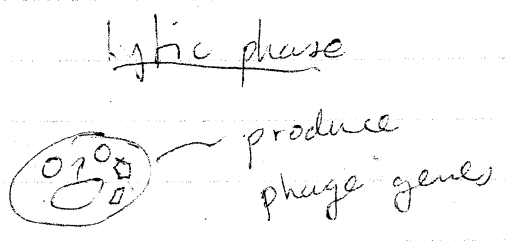 Lytic phase
produce
phage genes